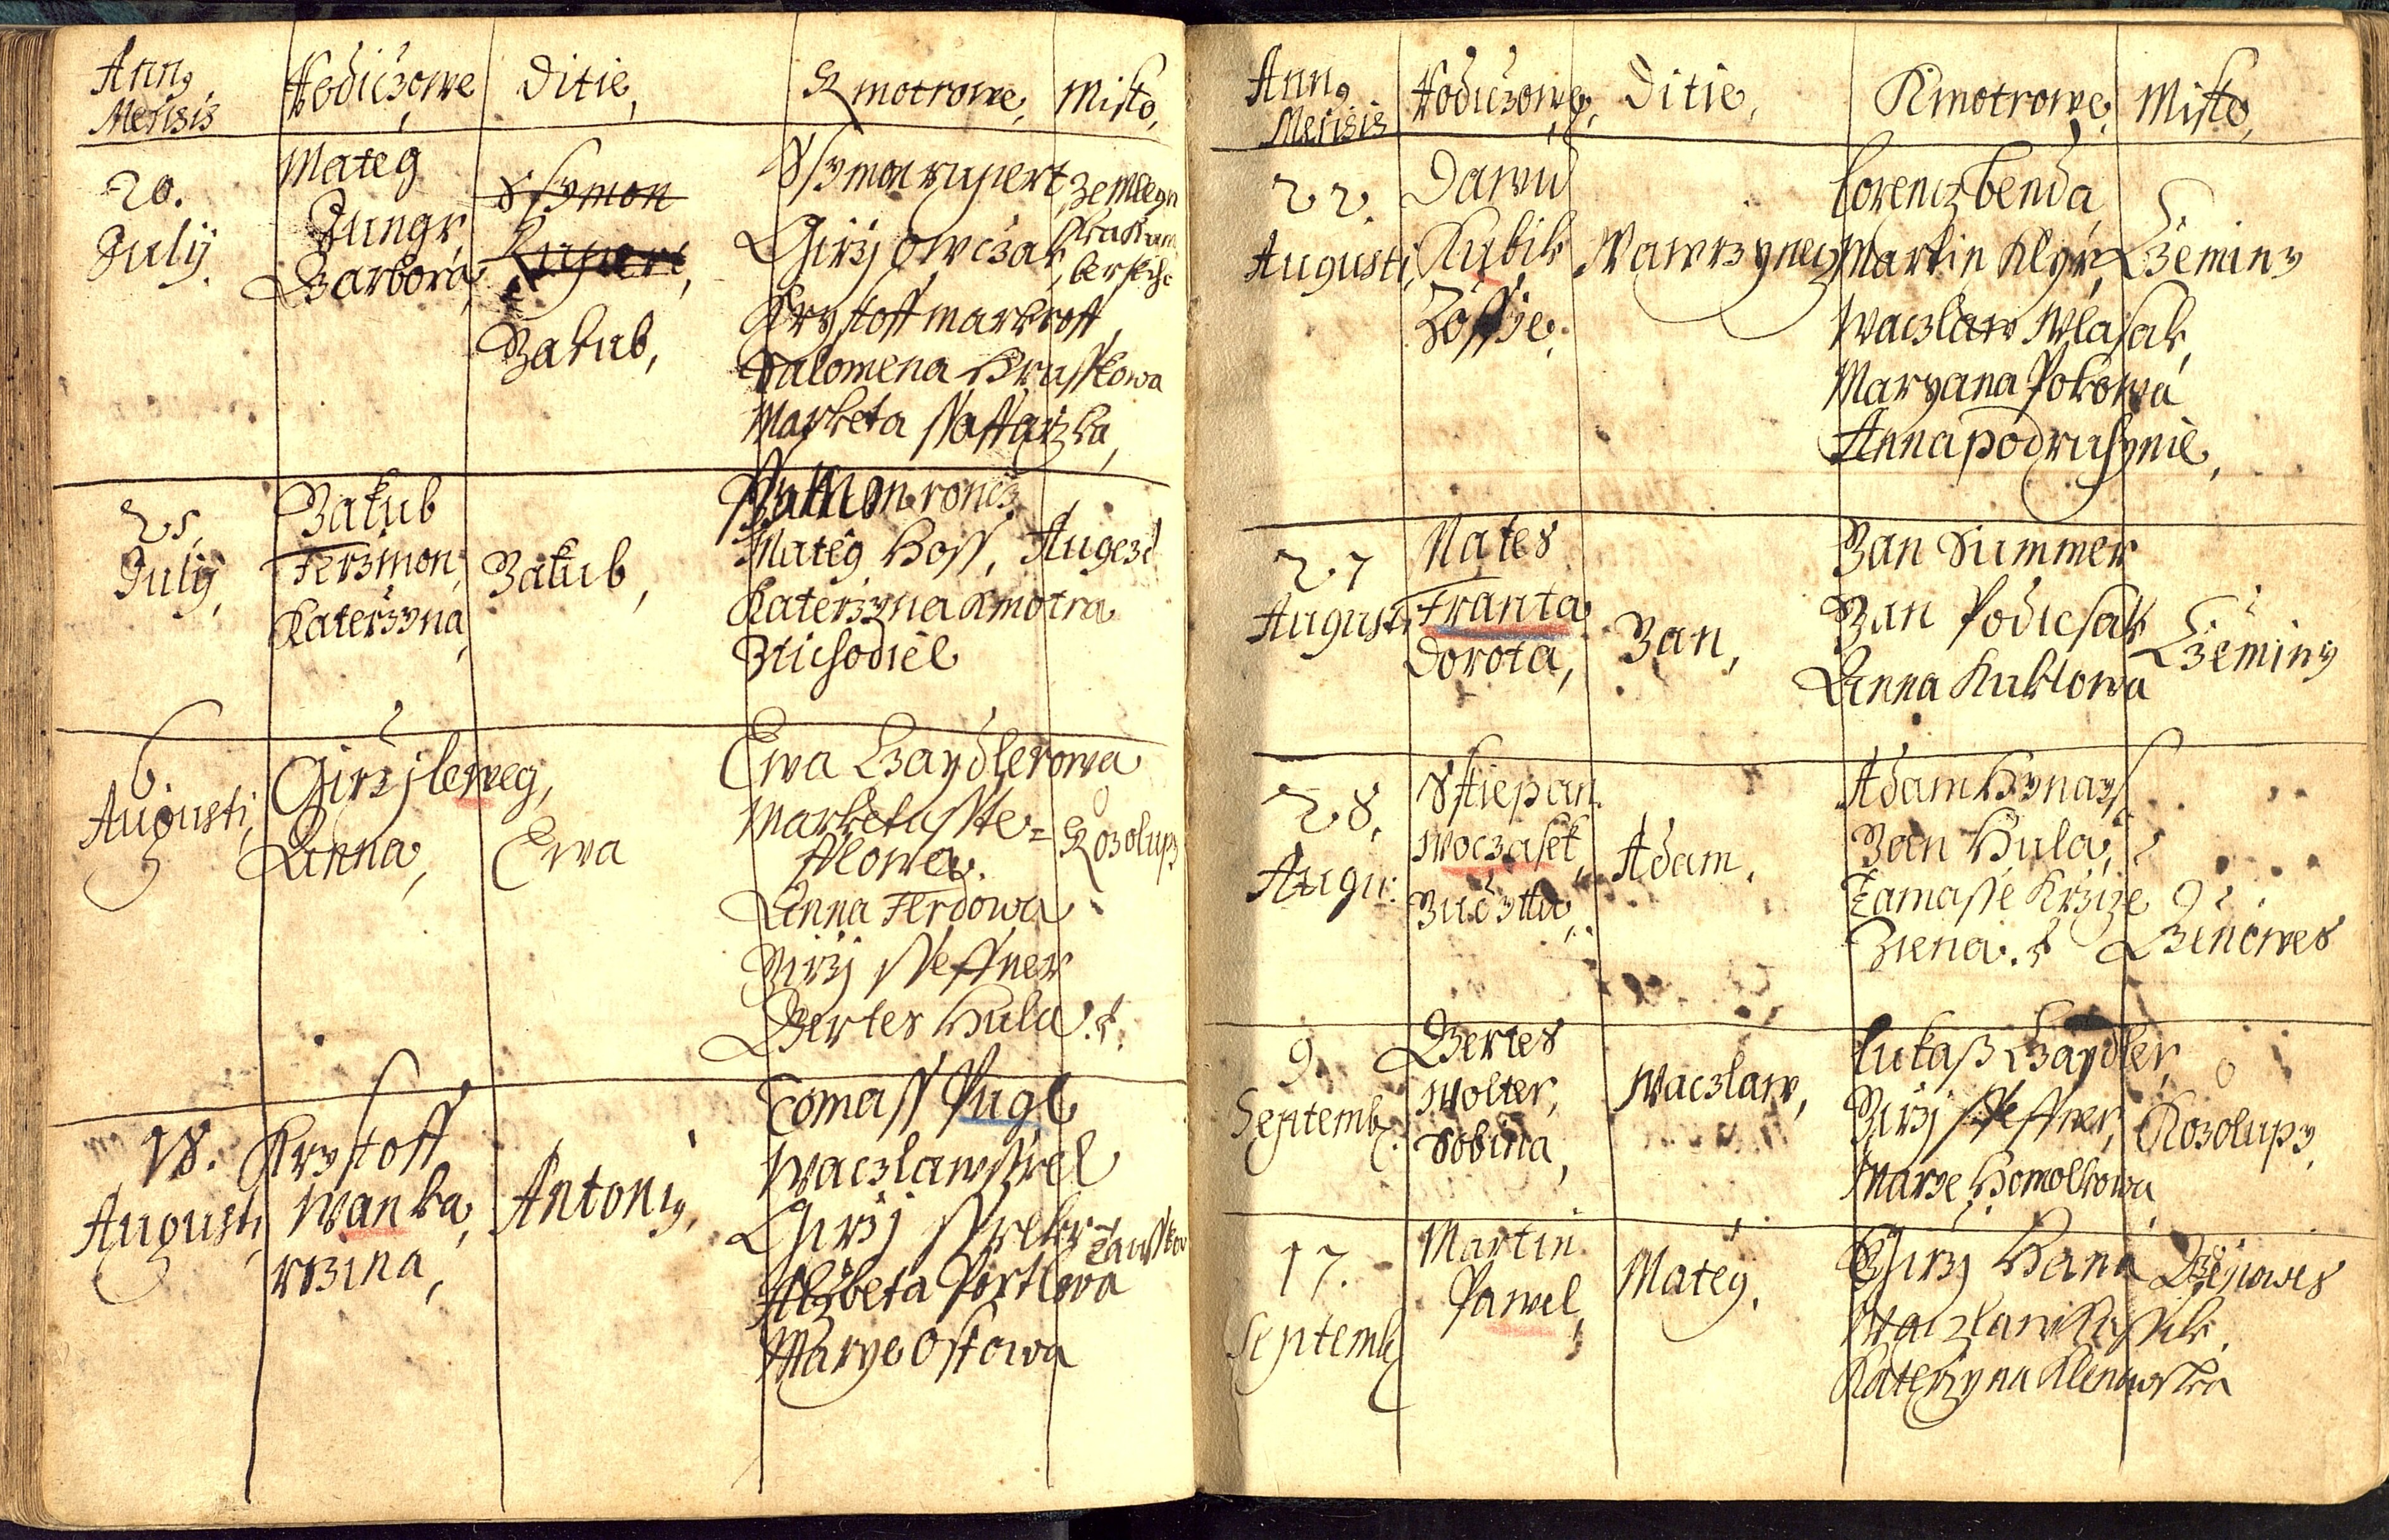 Anno Mensis Rodiczowe Ditie, Kmotrowe, Misto,
20. July.
Mateg
Jungr,
Barbora,
Ssymon
Rupert,
Zakub,
Ssymon rupert,
Girzj owczak,
Krystoff markroff
Salomena Krusskowa
Marketa
25. July,
Zakub
Ferzmon,
Katerzyna,
Zakub,
Mateg Hoss,
Katerzyna Kmotra
Augezd
6. Augusti,
Girzj leweg,
Anna,
Ewa
Ewa Baydlerowa
Marketa Sste=
fflowa.
Anna Ferdowa
Zirzj Steffner
Bertes Hula.
Kozolupy
18. Augusti,
Krystoff
Wanka,
rzina,
Antoniy,
Tomass Pugl
Waczlaw
Girzj
Alzbeta Portlowa
Marye Ostowa
Anno Mensis Rodiczowe, Ditie, Kmotrowe, Misto,
22. Augusti,
Dawid
Kubik
Zoffie,
Wawrzynecz
Lorencz benda,
Martin Klyr,
Waczlaw Wlasak,
Maryana Pokowa
Anna podruhynie,
Czeminy
27 Augusti,
Mates
Franta
Dorota,
Zan,
Zan Summer
Zan Podicsak
Anna Kuklowa
Czeminy
28. Augu:
Sstiepan
Woczasek,
Zuditta,
Adam,
Adam Hynays
Zan Hula,
Tamasse Krzize
Ziena.
Bdenowes
9. Septemb.
Bertes
Wolter,
Sobina,
Waczlaw,
Lukass Baydler,
Zirzj Steffner,
Marye Homolkowa
Kozolupy,
17. Septemb
Martin
Pawel,
Mateg.
Girzj Hana
Waczlaw
Katerzyna Klenowska